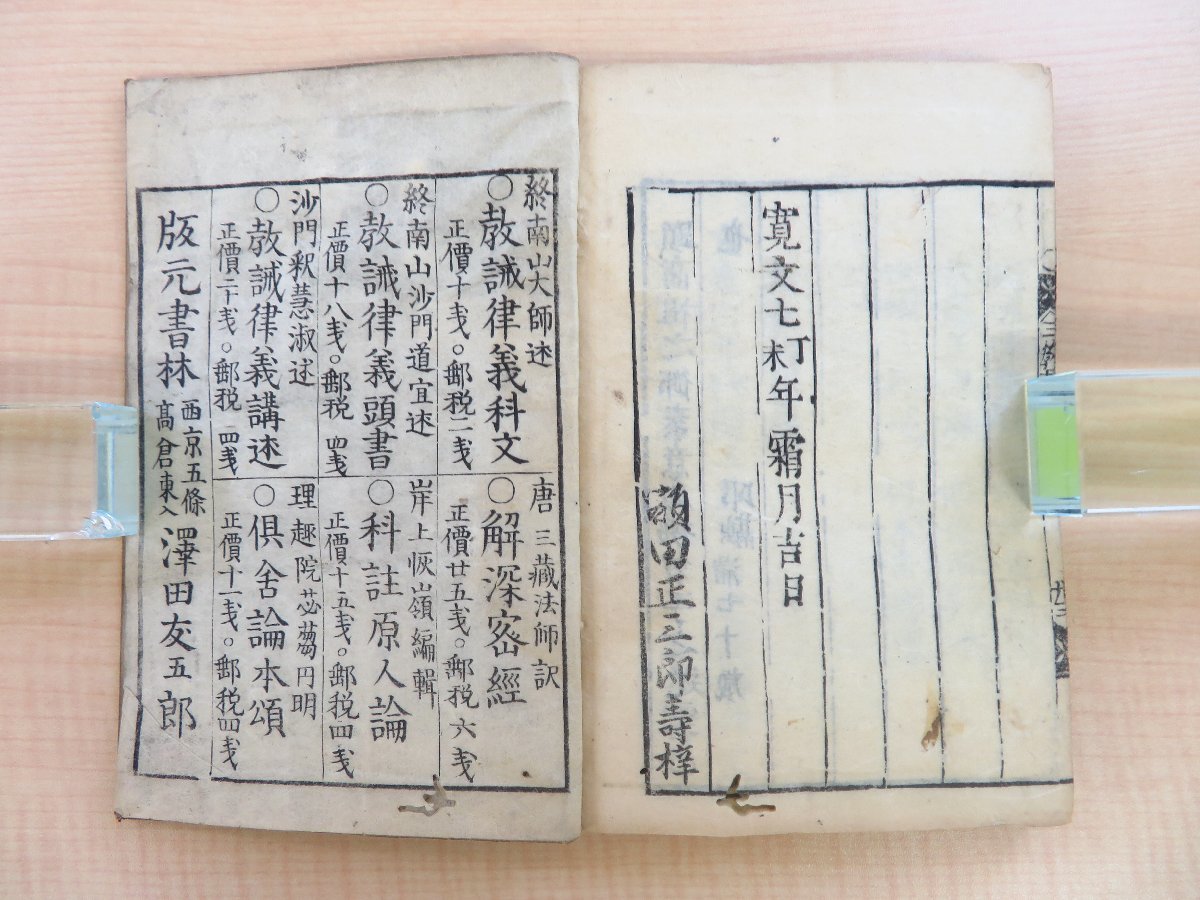 寛文七丁未年霜月吉日
額田正三郎壽梓
終南山大師述
○教誡律義科文
正價十戋。郵税二戋
終南山沙門道宣述
○教誡律義頭書
正價十八戋。郵税四戋
沙門釈慧淑述
○教誡律義講述
正價二十戋。郵税四戋
唐三藏法師訳
○解深密經
正價廿五戋。郵税六戋
岸上恢嶺編輯
○科註原人論
正價十五戋。郵税四戋
理趣院苾蒭円明
○倶舍論本頌
正價十一戋。郵税四戋
版元書林 西京五條高倉東入 澤田友五郎